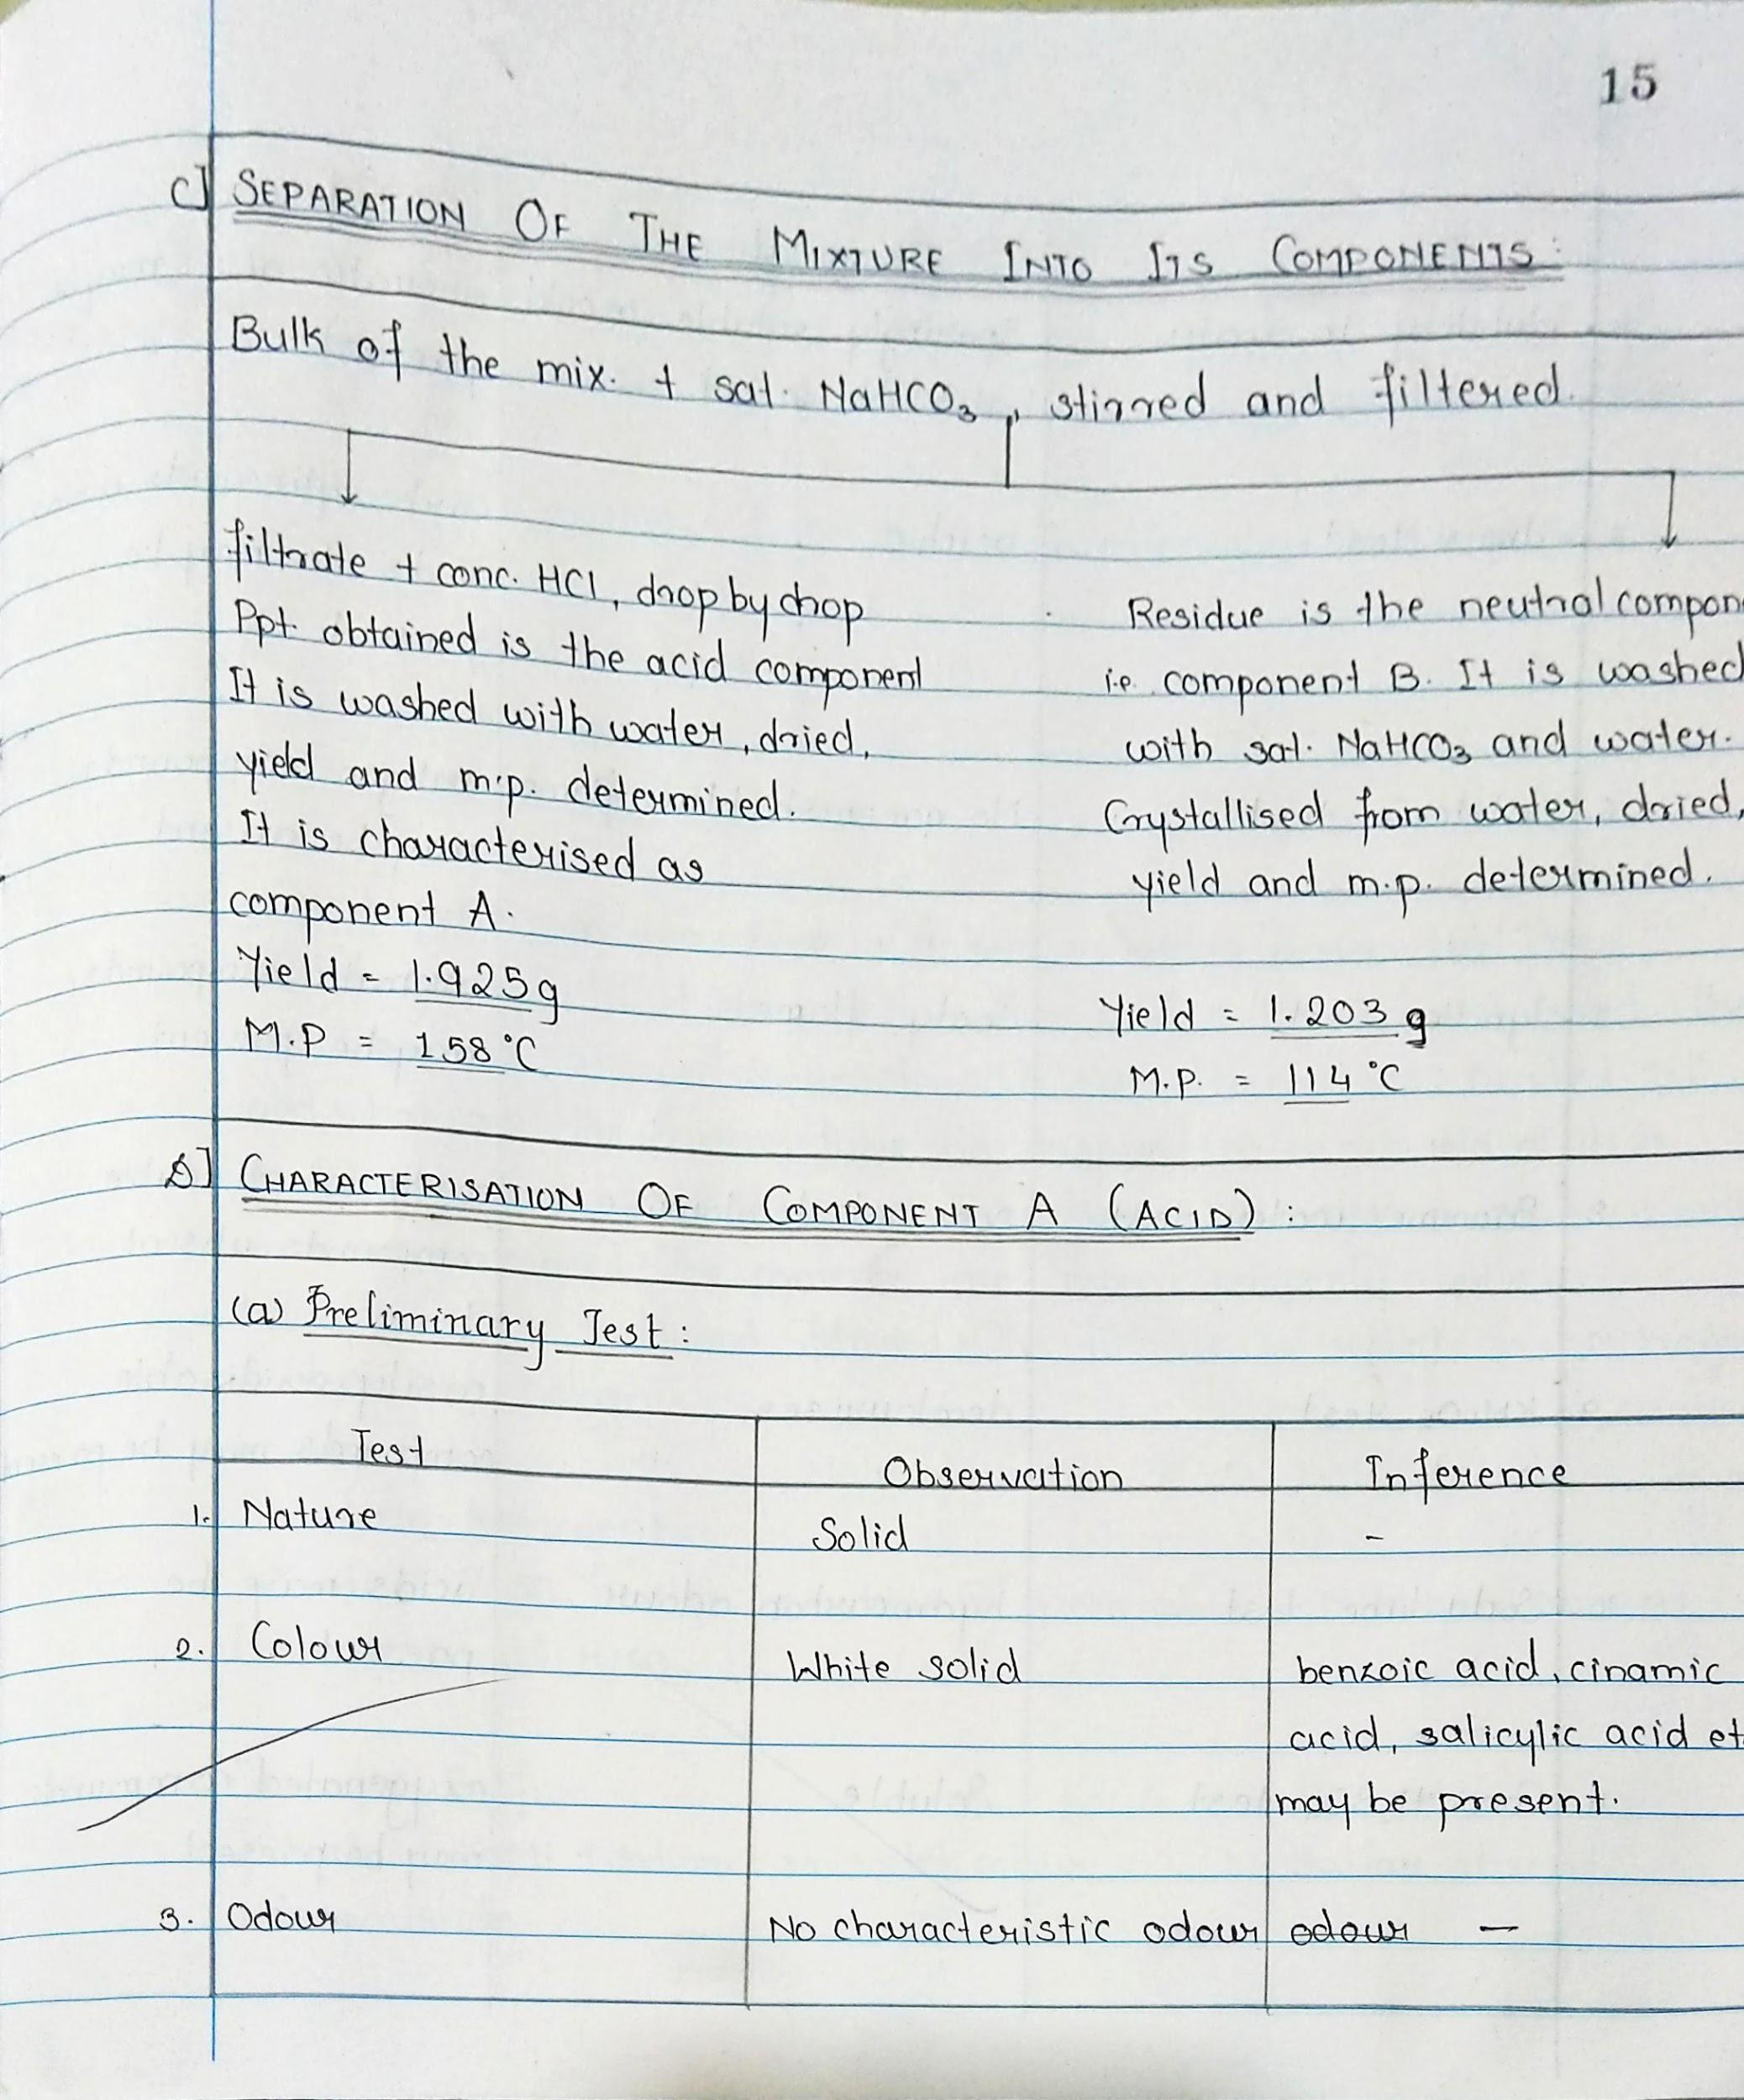 15
C] SEPARATION OF THE MIXTURE INTO ITS COMPONENTS:
Bulk of the mix. + sat. NaHCO₃, stirred and filtered.
filtrate + conc. HCl, drop by drop
Ppt. obtained is the acid component
It is washed with water, dried,
yield and m.p. determined.
It is characterised as
component A.
Yield = 1.925g
M.P = 158°C
Residue is the neutral compon
i.e. component B. It is washed
with sat. NaHCO₃ and water.
Crystallised from water, dried,
yield and m.p. determined.
Yield = 1.203 g
M.P. = 114°C
D] CHARACTERISATION OF COMPONENT A (ACID):
(a) Preliminary Test:
Test Observation Inference
1. Nature Solid -
2. Colour White solid benzoic acid, cinamic
acid, salicylic acid et
may be present.
3. Odour No characteristic odour odour —